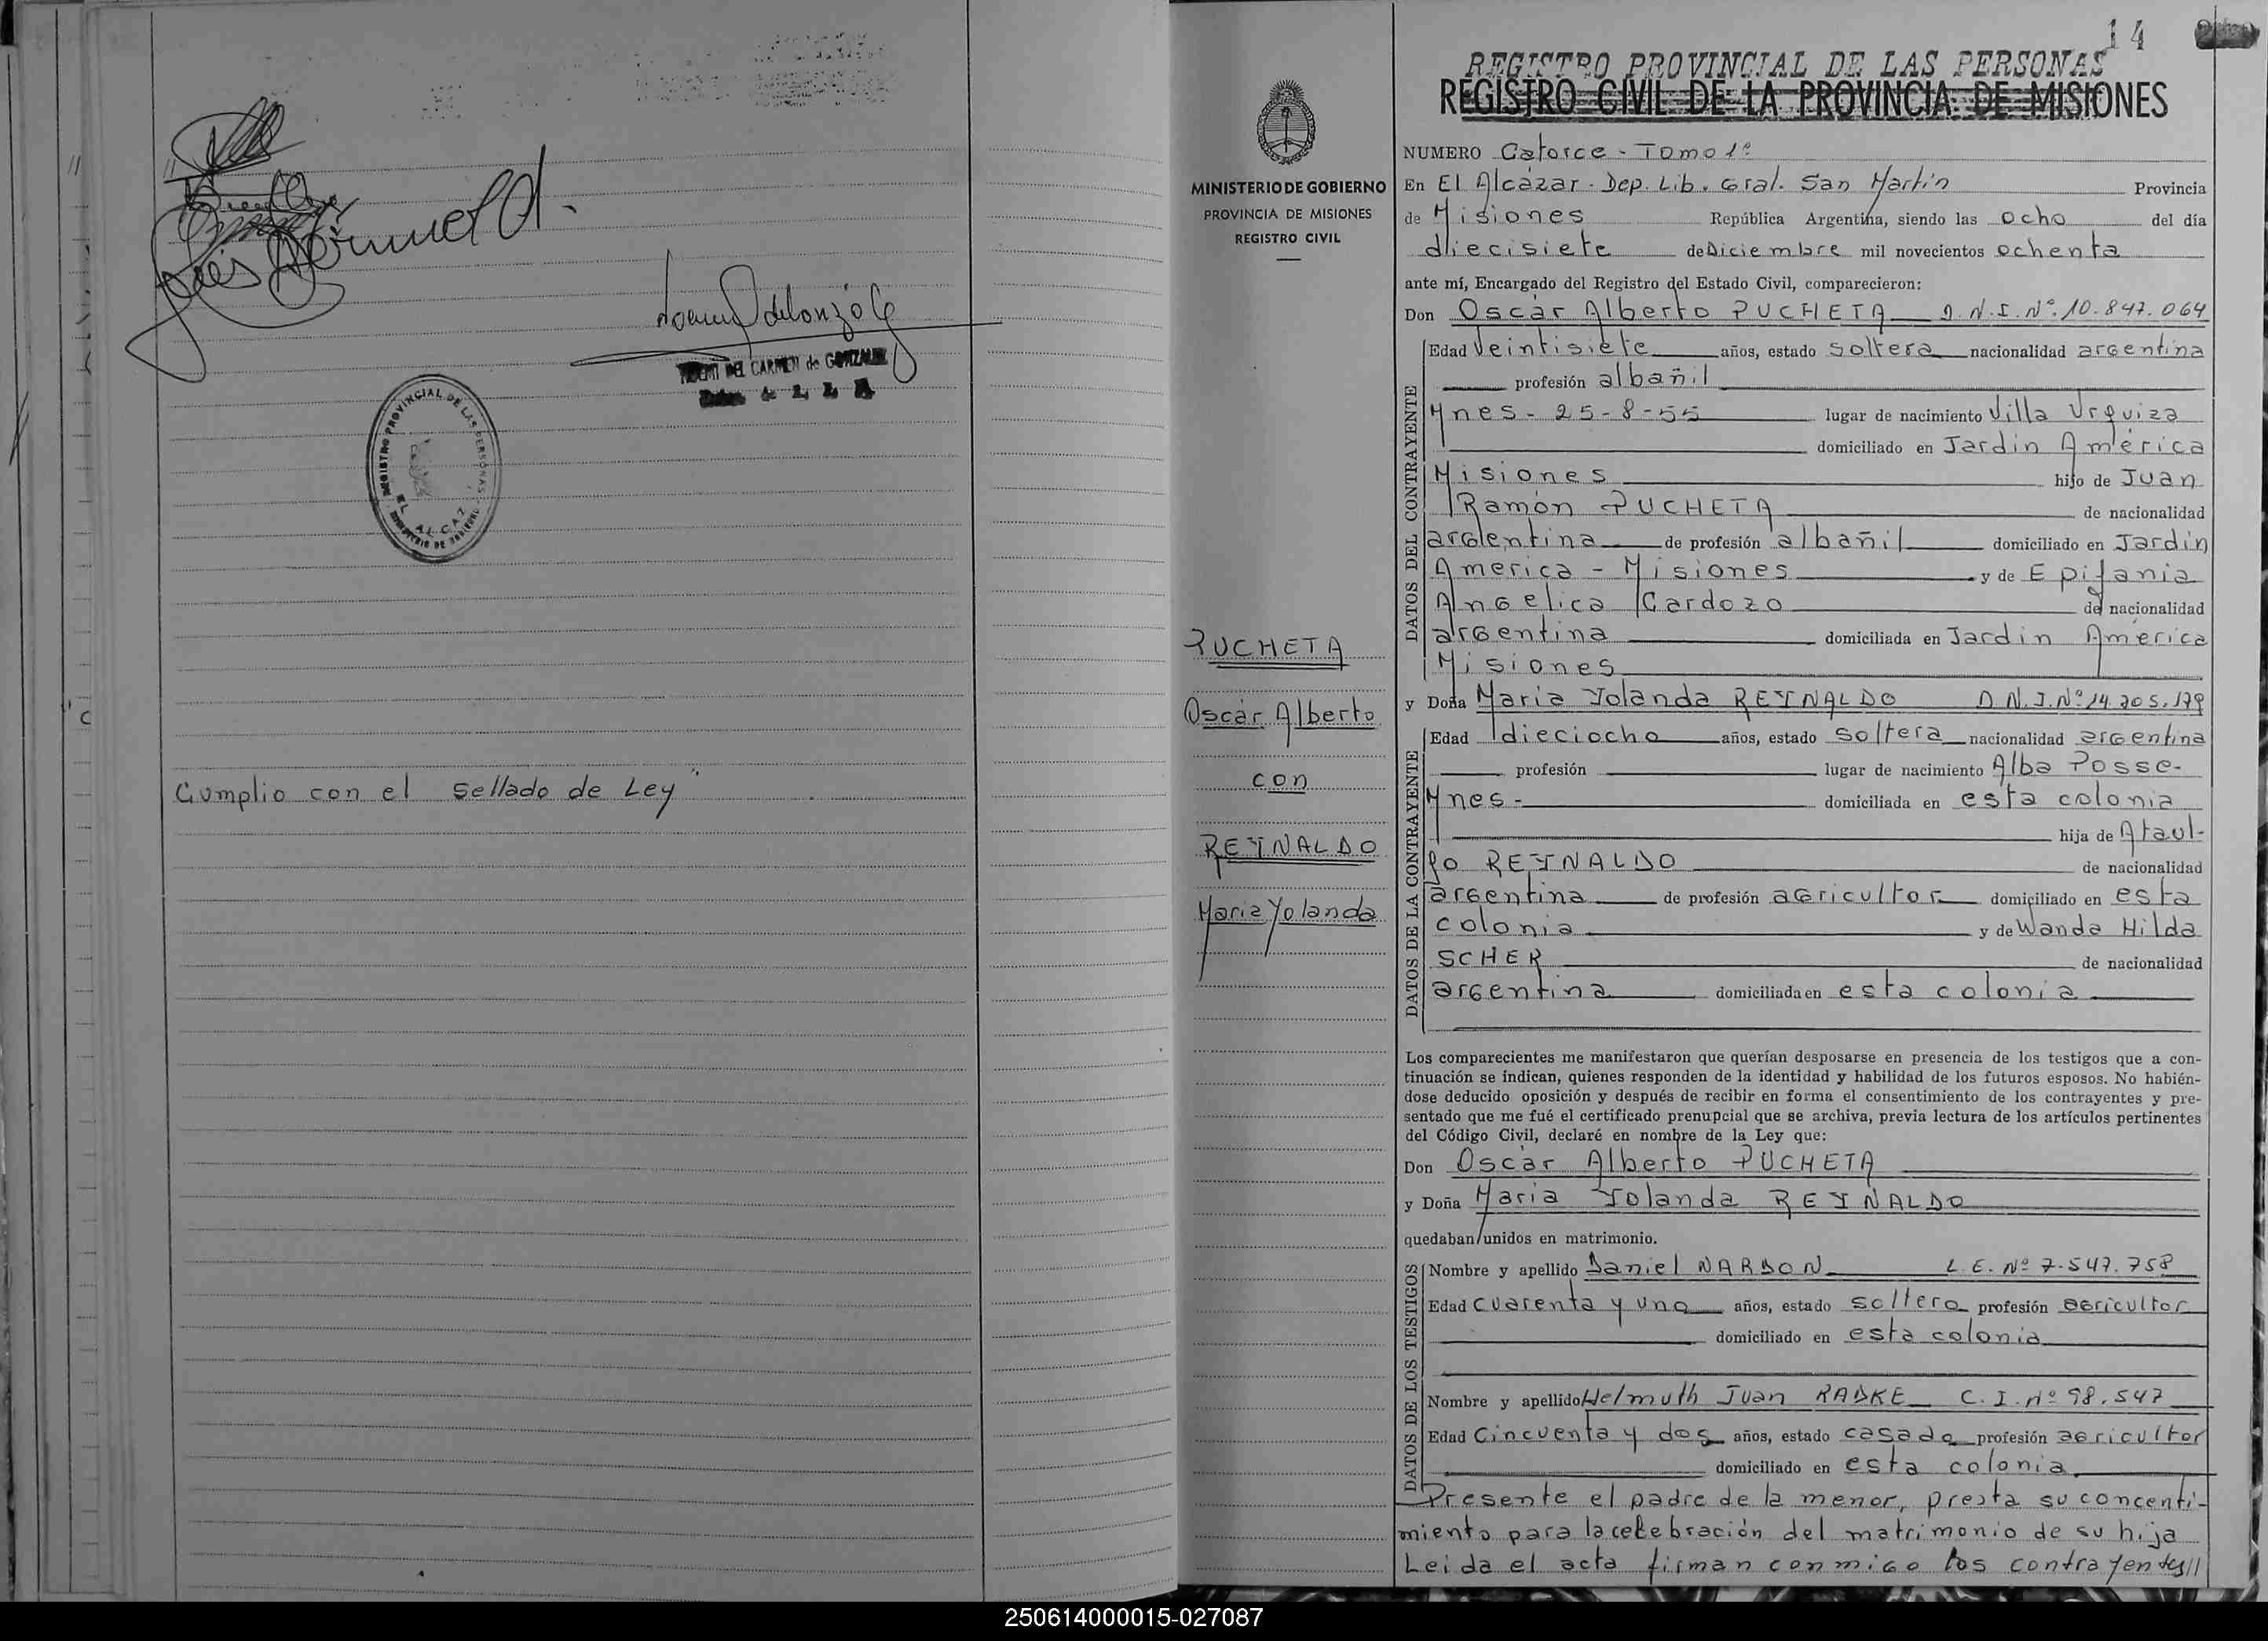 Noemi del C. de González
NOEMI DEL CARMEN de GONZALEZ
REGISTRO PROVINCIAL DE LAS PERSONAS
EL ALCAZ
MINISTERIO DE GOBIERNO
Cumplio con el Sellado de Ley"
14
REGISTRO PROVINCIAL DE LAS PERSONAS
REGISTRO CIVIL DE LA PROVINCIA DE MISIONES
MINISTERIO DE GOBIERNO
PROVINCIA DE MISIONES
REGISTRO CIVIL
PUCHETA
Oscar Alberto
con
REYNALDO
Maria Yolanda
NUMERO Catorce - Tomo 1º
En El Alcázar. Dep. Lib. Gral. San Martín Provincia
de Misiones República Argentina, siendo las ocho del día
diecisiete de Diciembre mil novecientos ochenta
ante mí, Encargado del Registro del Estado Civil, comparecieron:
Don Oscar Alberto PUCHETA D.N.I.Nº.10.847.064
DATOS DEL CONTRAYENTE
Edad Veintisiete años, estado soltera nacionalidad argentina
profesión albañil
Mnes - 25-8-55 lugar de nacimiento Villa Urquiza
domiciliado en Jardin América
Misiones hijo de Juan
Ramón PUCHETA de nacionalidad
argentina de profesión albañil domiciliado en Jardin
America - Misiones y de Epifania
Angelica Cardozo de nacionalidad
argentina domiciliada en Jardin América
Misiones
y Doña Maria Yolanda REYNALDO D.N.I.Nº 14.205.179
DATOS DE LA CONTRAYENTE
Edad dieciocho años, estado soltera nacionalidad argentina
profesión lugar de nacimiento Alba Posse-
Mnes- domiciliada en esta colonia
hija de Ataul-
fo REYNALDO de nacionalidad
argentina de profesión agricultor domiciliado en esta
colonia y de Wanda Hilda
SCHER de nacionalidad
argentina domiciliada en esta colonia
Los comparecientes me manifestaron que querían desposarse en presencia de los testigos que a con-
tinuación se indican, quienes responden de la identidad y habilidad de los futuros esposos. No habién-
dose deducido oposición y después de recibir en forma el consentimiento de los contrayentes y pre-
sentado que me fué el certificado prenupcial que se archiva, previa lectura de los artículos pertinentes
del Código Civil, declaré en nombre de la Ley que:
Don Oscar Alberto PUCHETA
y Doña Maria Yolanda REYNALDO
quedaban unidos en matrimonio.
DATOS DE LOS TESTIGOS
Nombre y apellido Daniel NARDON L.E. Nº 7.547.758
Edad cuarenta y uno años, estado soltero profesión agricultor
domiciliado en esta colonia
Nombre y apellido Helmuth Juan RADKE C.I. nº 98.547
Edad Cincuenta y dos años, estado casado profesión agricultor
domiciliado en esta colonia
Presente el padre de la menor, presta su concenti-
miento para la celebración del matrimonio de su hija
Leida el acta firman conmigo los contrayentes//
250614000015-027087